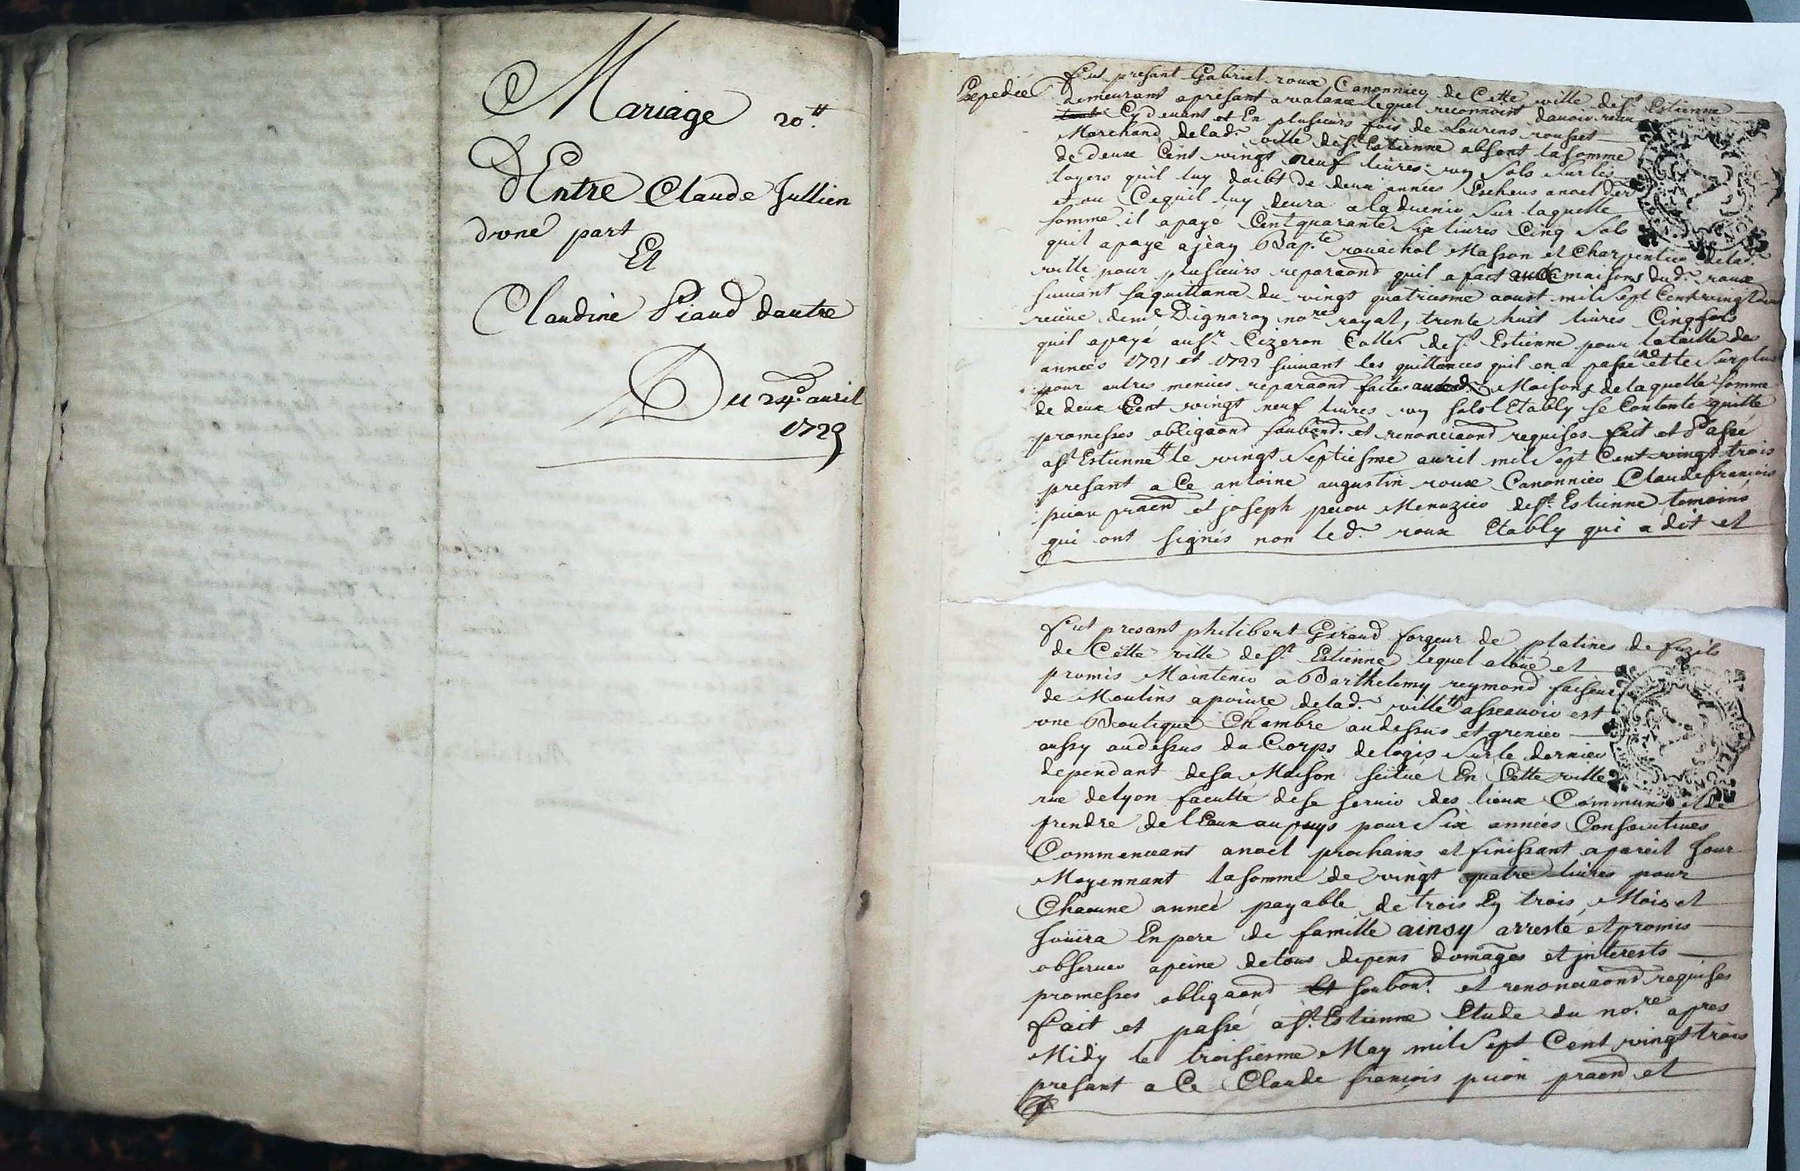 Mariage 20tt
D'Entre Claude Jullien
d'une part
Et
Claudine Piaud dautre
Du 24e. auril
1723
Expediée
fut presant Gabriel roux Canonnier de Cette ville de st. Estienne
demeurant apresant a valance lequel reconnoit dauoir reçu
Cy deuant et En plusieurs fois de Laurens rousset
Marchand delad. ville de st. Estienne absent la somme
de deux Cent vingt neuf liures sols sur les
loyers quil luy doibt de deux années Escheus a noel der
et ou Ce quil luy deura a laduenir sur laquelle
somme il a paye Cent quarante six liures Cinq sols
quil a payé a jean Bapte. rouachol Masson et Charpentier delad.
ville pour plusieurs reparaond quil a fait maisons dud. roux
suiuant sa quittance du vingt quatriesme aoust mil sept Cent vingt
receüe de me. Dignaron nore royal, trente huit liures Cinq sols
quil a payé au sr. Cizeron Collr. de st. Estienne pour la taille des
années 1721 et 1722 suiuant les quittances quil en a passé et le surplus
pour autres menues reparaond faites Maisons de laquelle somme
de deux Cent vingt neuf liures sols l'Etably se Contente quitte
promesses obligaond soubond. et renonciaond requises fait et Passé
a st. Estienne le vingt septiesme auril mil sept Cent vingt trois
presant a Ce antoine augustin roux Canonnier Claude francois
picon praend et joseph picon Menuzier de st. Estienne temoins
qui ont signés non led. roux Etably qui a dit et
fut presant philibert Giraud forgeur de platines de fuzils
de Cette ville de st. Estienne lequel a loüé et
promis Maintenir a Barthelemy reymond faiseur
de Moulins a poiure delad. ville asseauoir est
vne Boutique Chambre au dessus et grenier
aussy au dessus du Corps de logis sur le dernier
dependant de sa Maison scitue En Cette ville
rue de lyon faculté de se seruir des lieux Communs et de
prendre de l'Eaux au puys pour six années Consecutiues
Commencant a noel prochains et finissant a pareil Jour
Moyennant la somme de vingt quatre liures pour
Chacune année payable de trois En trois Mois et
Joüira En pere de famille ainsy arresté et promis
obseruer a peine de tous depens domages et jnterests
promesses obligaond et soubond. et renonciaond requises
fait et passé a st. Estienne Etude du nore. apres
Midy le troisiesme May mil sept Cent vingt trois
presant a Ce Claude francois picon praend et